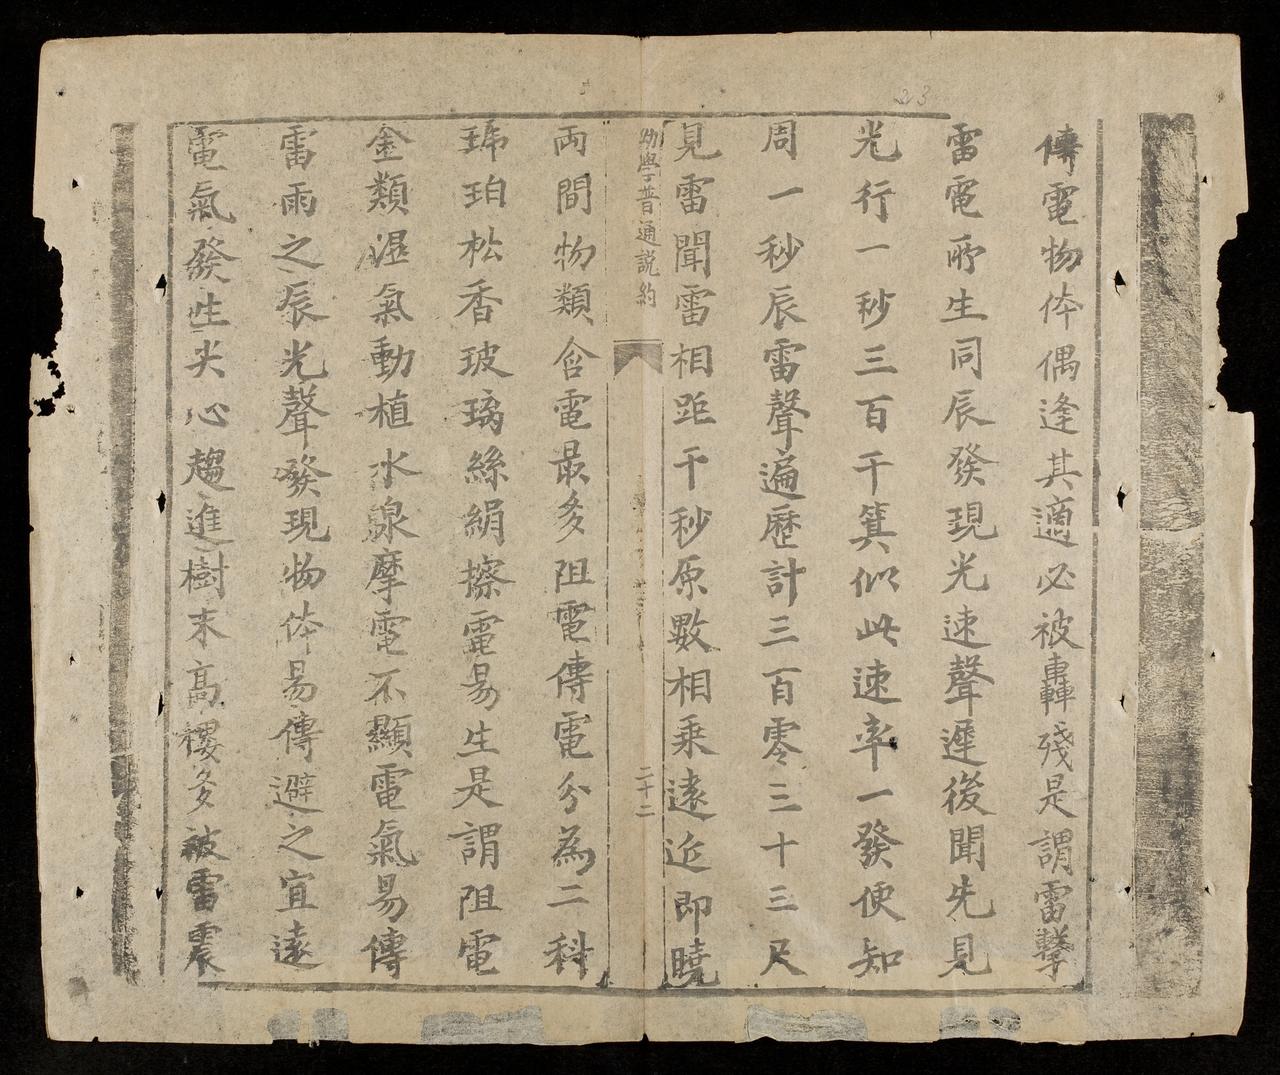 傳電物体偶逢其適必被轟殘是謂雷擊
雷電所生同辰發現光速聲遲後聞先見
光行一秒三百千箕似此速率一發便知
周一秒辰雷聲遍歷計三百零三十三尺
見雷聞雷相距干秒原數相乘遠近即曉
幼學普通説約
二十二
両間物類含電最多阻電傳電分為二科
琥珀松香玻璃絲絹擦電易生是謂阻電
金類濕氣動植水泉摩電不顯電氣易傳
雷雨之辰光聲發現物体易傳避之宜遠
電氣發生尖心趨進樹末高楼多被雷震
23